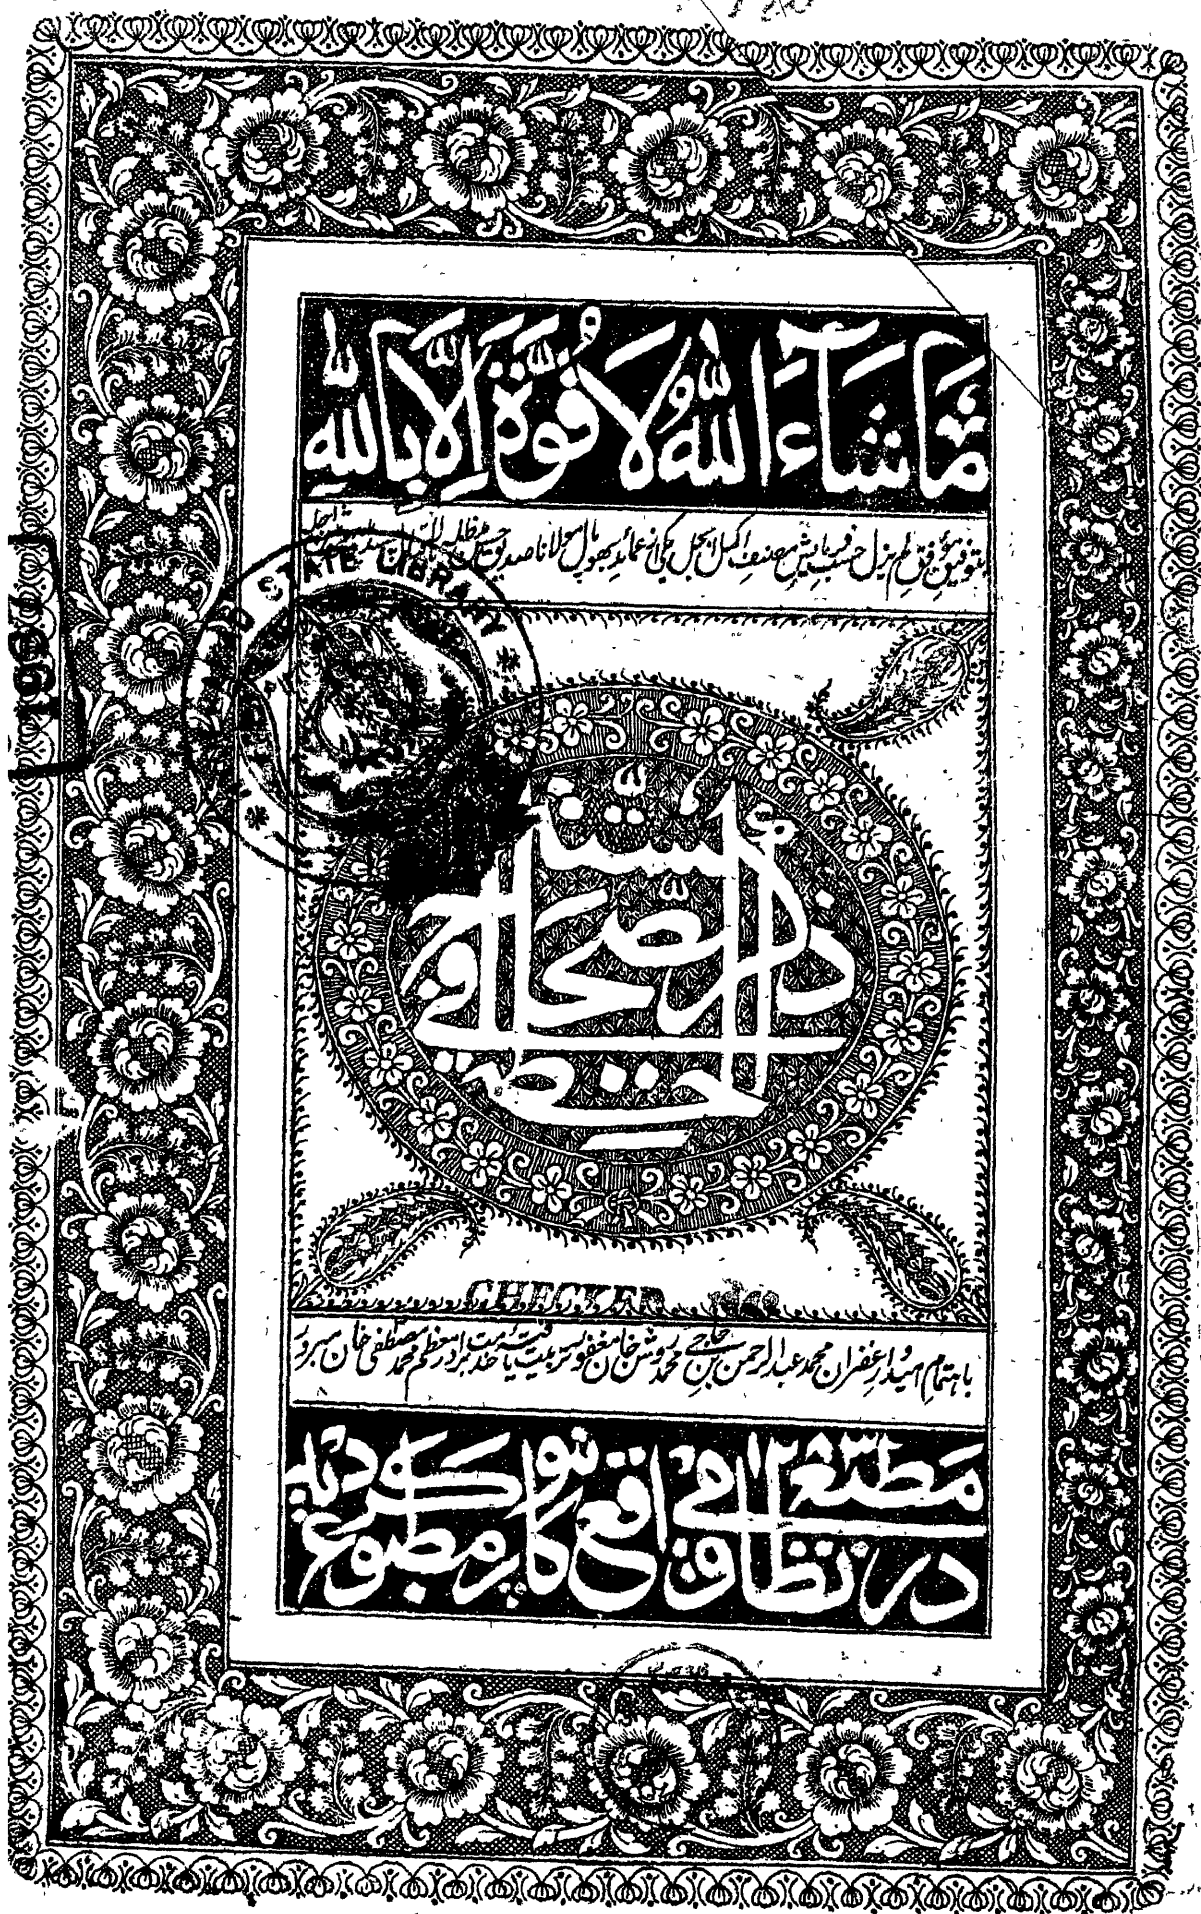 مَا شَاءَ اللّٰهُ لَا قُوَّةَ إِلَّا بِاللّٰهِ
بتوفیق موفق لم یزل حسب فرمایش مصنف اکمل اجل یکی از عمائد بھوپال مولانا صدیق حسن
STATE LIBRARY
الحطة في
ذكر الصحاح
الستة
CHECKED
باہتمام امیدوار غفران محمد عبدالرحمن بن حاجی محمد روشن خان مغفور تربیت یافتہ خدمت برادر معظم محمد مصطفی خان مبرور
در مطبع نظامی واقع کانپور مطبوع گردید
۱۲۸۳